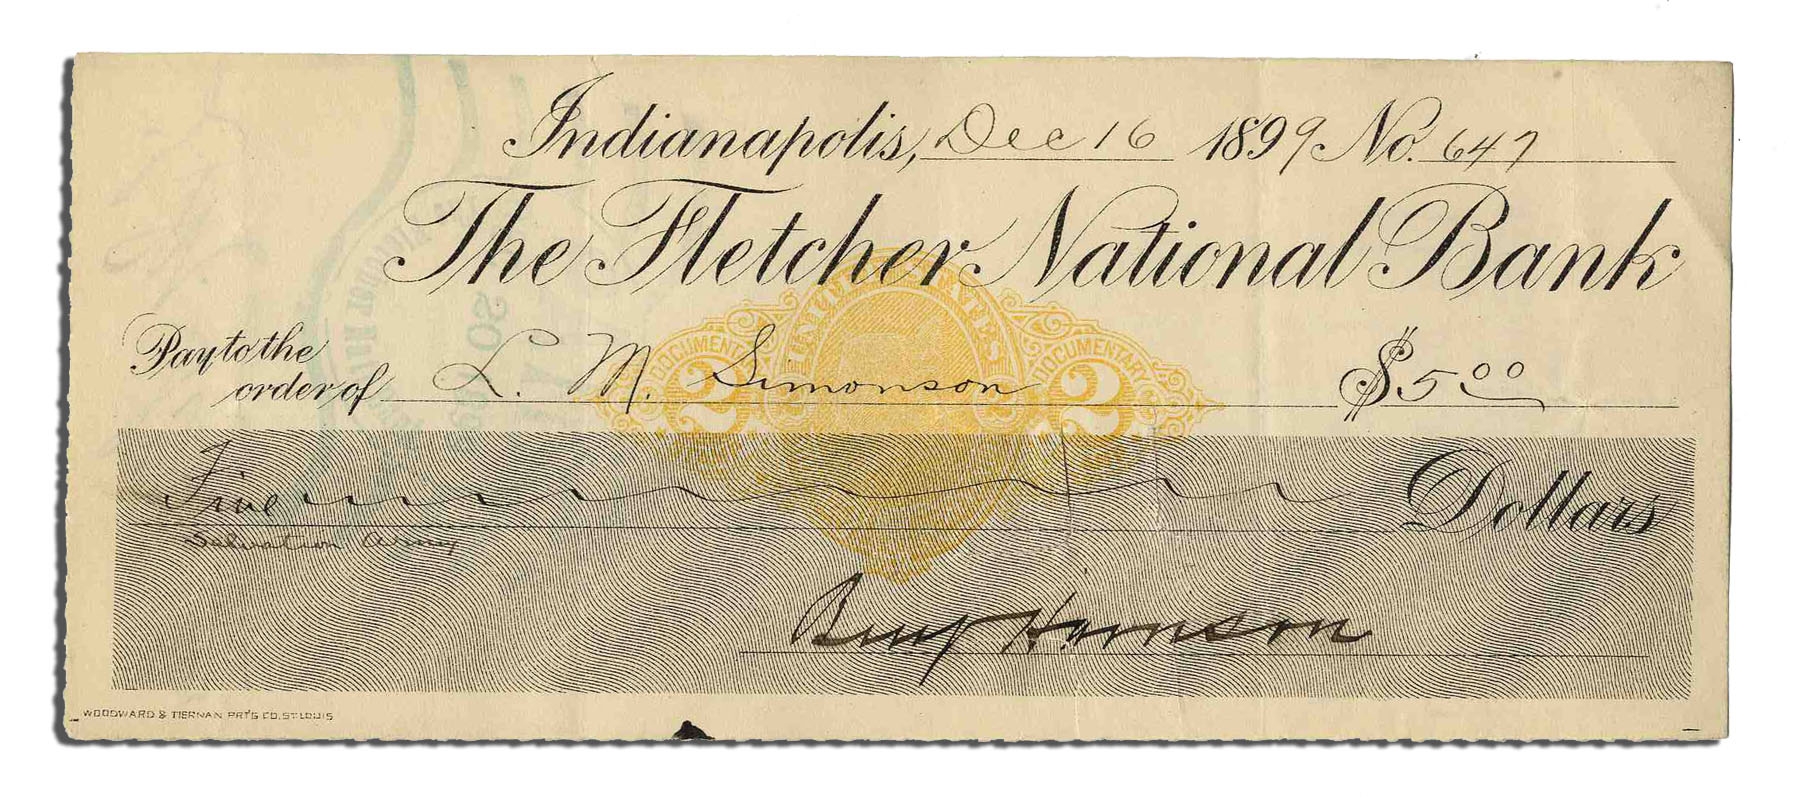 Indianapolis, Dec 16 1899 No. 647
The Fletcher National Bank
Pay to the
order of L. M. Simonson $5.00
UNITED STATES
DOCUMENTARY DOCUMENTARY
2 2
Five Dollars
Salvation Army
Benj Harrison
WOODWARD & TIERNAN PRT'G CO. ST. LOUIS